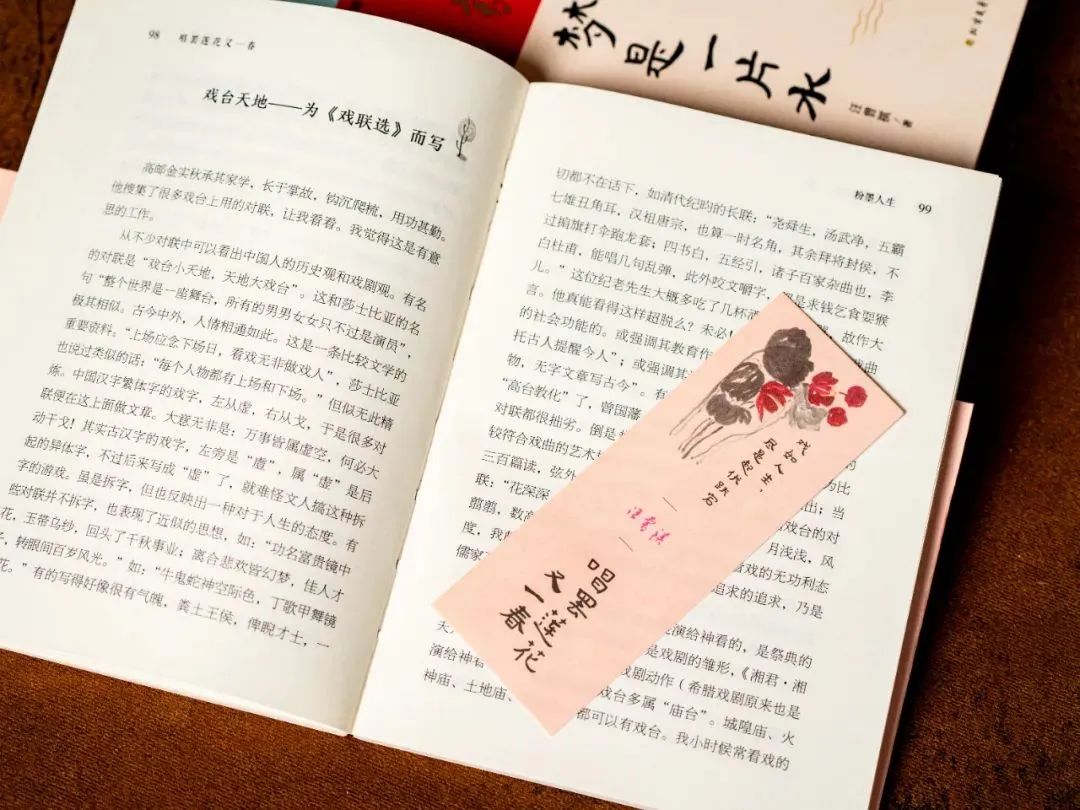 梦是一片水
汪曾祺/著
98 唱罢莲花又一春
戏台天地——为《戏联选》而写
高邮金实秋承其家学，长于掌故，钩沉爬梳，用功甚勤。
他搜集了很多戏台上用的对联，让我看看。我觉得这是有意
思的工作。
从不少对联中可以看出中国人的历史观和戏剧观。有名
的对联是“戏台小天地，天地大戏台”。这和莎士比亚的名
句“整个世界是一座舞台，所有的男男女女只不过是演员”，
极其相似。古今中外，人情相通如此。这是一条比较文学的
重要资料。“上场应念下场日，看戏无非做戏人”，莎士比亚
也说过类似的话：“每个人物都有上场和下场。”但似无此精
炼。中国汉字繁体字的戏字，左从虚，右从戈，于是很多对
联便在这上面做文章。大意无非是：万事皆属虚空，何必大
动干戈！其实古汉字的戏字，左旁是“䖒”，属“虚”是后
起的异体字，不过后来写成“虚”了，就难怪文人搞这种拆
字的游戏。虽是拆字，但也反映出一种对于人生的态度。有
些对联并不拆字，也表现了近似的思想，如：“功名富贵镜中
花，玉带乌纱，回头了千秋事业；离合悲欢皆幻梦，佳人才
子，转眼间百岁风光。”如：“牛鬼蛇神空际色，丁歌甲舞镜
花。”有的写得好像很有气魄，粪土王侯，俾睨才士，一
粉墨人生 99
切都不在话下，如清代纪昀的长联：“尧舜生，汤武净，五霸
七雄丑角耳，汉祖唐宗，也算一时名角，其余拜将封侯，不
过掮旗打伞跑龙套；四书白，五经引，诸子百家杂曲也，李
白杜甫，能唱几句乱弹，此外咬文嚼字，是求钱乞食耍猴
儿。”这位纪老先生大概多吃了几杯，故作大
言。他真能看得这样超脱？未必！戏曲
的社会功能的。或强调其教育作
托古人提醒今人”；或强调其
物，无字文章写古今”。有
“高台教化”了，曾国藩
对联都很拙劣。倒是
较符合戏曲的艺术 为比
三百篇读，弦外 出；当
联：“花深深 戏台的对
翡翡，数 月浅浅，风
度，我 看戏的无功利态
儒家 追求的追求，乃是
演给神看的，是祭典的
演给神看 是戏剧的雏形，《湘君·湘
戏剧动作（希腊戏剧原来也是
神庙、土地庙、 戏台多属“庙台”。城隍庙、火
都可以有戏台。我小时候常看戏的
戏如人生，
尽是起伏跌宕
汪曾祺
唱罢莲花
又一春